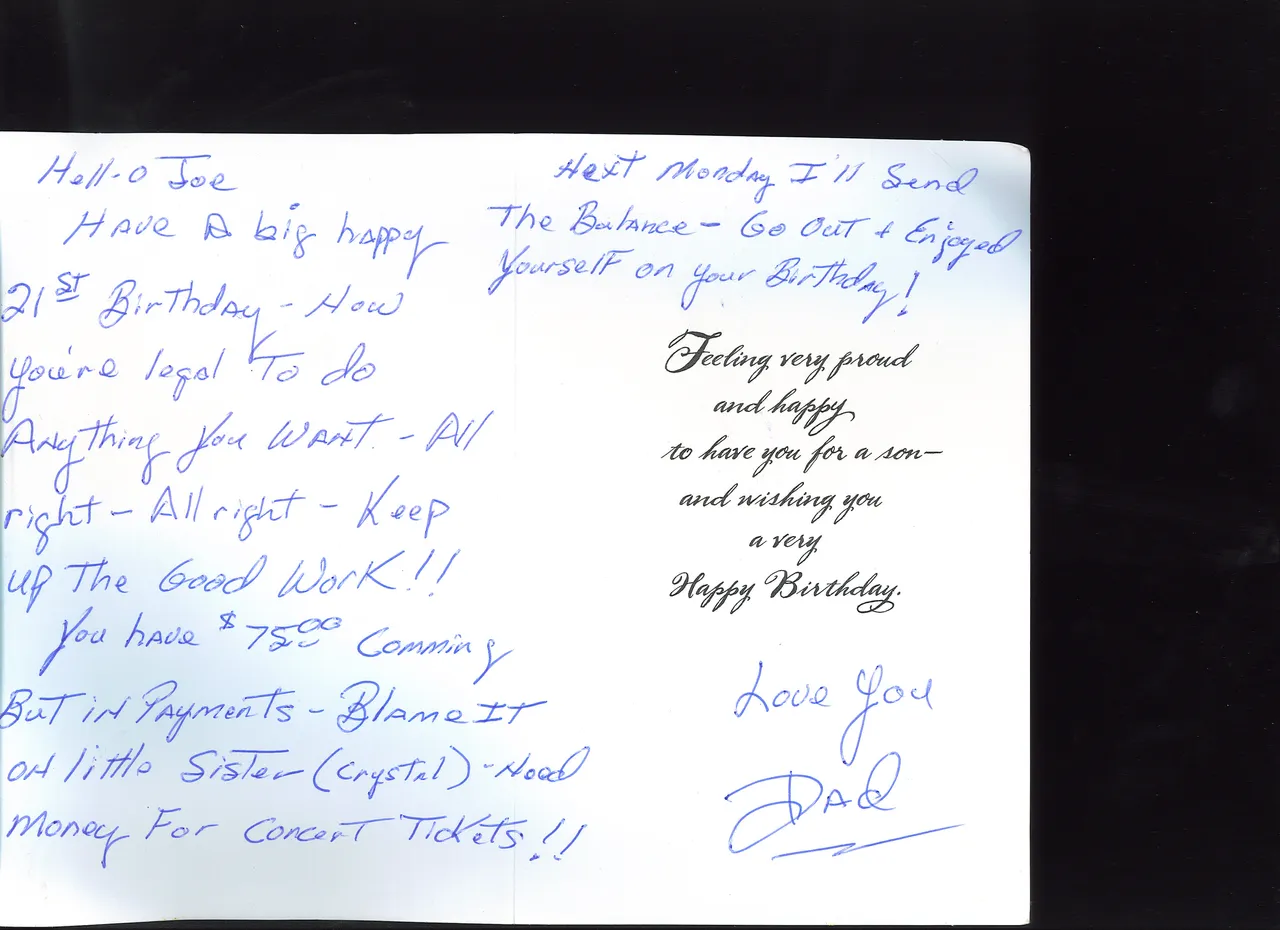 Hell-o Joe
Have A big happy
21ST Birthday - Now
you're legal To do
Anything You Want - All
right - All right - Keep
up The Good Work!!
You have $75.00 Comming
But in Payments - Blame It
on little Sister (Crystal) - Need
Money For Concert Tickets!!
Next Monday I'll Send
The Balance - Go Out & Enjoyed
Yourself on your Birthday!
Feeling very proud
and happy
to have you for a son—
and wishing you
a very
Happy Birthday.
Love You
Dad